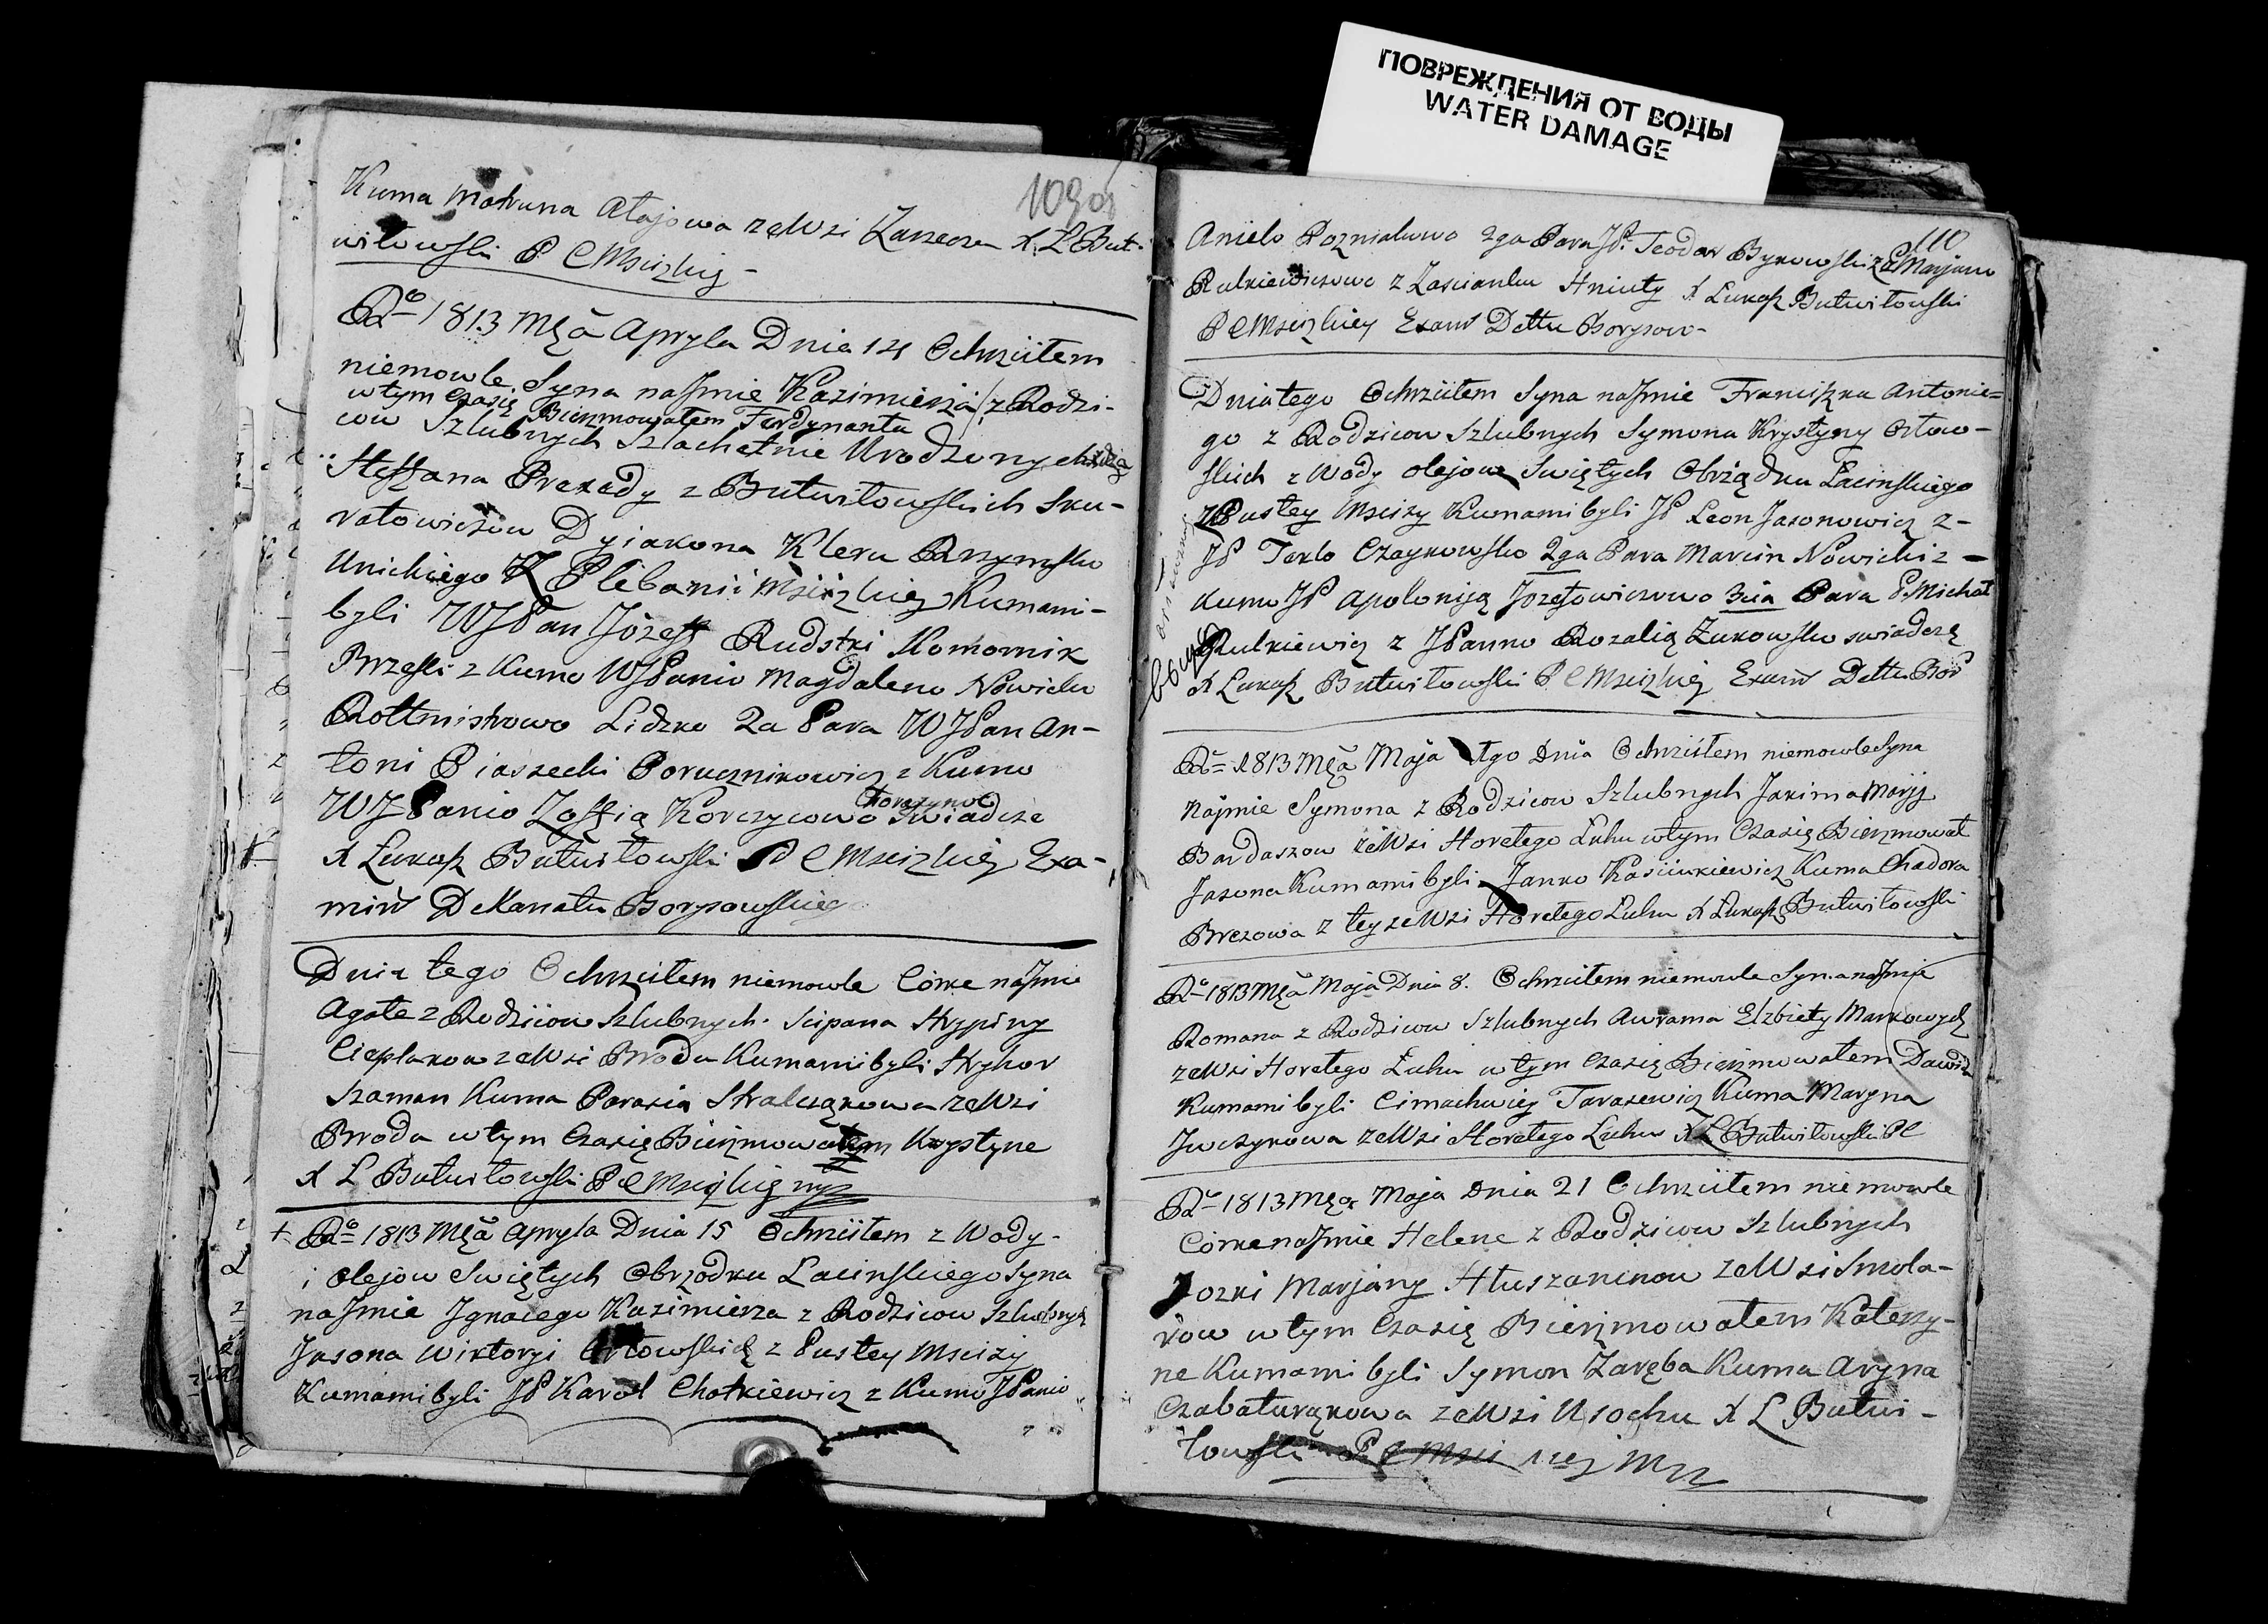 ПОВРЕЖДЕНИЯ ОТ ВОДЫ
WATER DAMAGE
109
Kuma Matruna Atajowa ze Wsi Zarzecza X. L. But-
wiłowski P C Msciżkiey
Rº 1813 Mca Apryla Dnia 14 Ochrzciłem
niemowle Syna na Jmie Kazimierza z Rodzi-
w tym czasie Bierzmowałem Ferdynanta
cow Szlubnych Szlachetnie Urodzonych
Steffana Praxedy z Butwiłowskich Sku-
ratowiczow Dyiakona Kleru Rzymsko
Unickiego z Plebanii Msciżkiey Kumami-
byli WJPan Józeff Rudski Komornik
Brzeski z Kumo WJPanio Magdaleno Nowicko
Rottmistrzowo Lidzko 2a Para WJPan An-
toni Piasecki Porucznikowicz z Kumo
WJPanio Zoffią Korczycowo Chorążyno Swiadcze
X Łukasz Butwiłowski P C Msciżkiey Exa-
min Dekanatu Borysowskiego
Dnia tego Ochrzciłem niemowle Córke na Jmie
Agate z Rodzicow Szlubnych Scipana Krypiny
Cieplakow ze Wsi Broda Kumami byli Hryhor
Szaman Kuma Parasia Stralcząkowa ze Wsi
Broda w tym Czasie Bierzmowałem Krystyne
X L Butwiłowski P C Msciżkiey
+ Rº 1813 Mca Apryla Dnia 15 Ochrzciłem z Wody
i Olejow Swiętych Obrzodku Lacinskiego Syna
na Jmie Jgnacego Kazimierza z Rodzicow Szlubnych
Jasona Wiktoryi Orłowskich z Pustey Msciży
Kumami byli JP Karol Chotkiewicz z Kumo JPanio
110
Anielo Pozniakowo 2ga Para JP. Teodor Bykowski z P Marjano
Rutkiewiczowo z Zascianku Hniuty X Łukasz Butwiłowski
P C Msciżkiey Exam Dettu Borysow-
Dnia tego Ochrzciłem Syna na Jmie Franciszka Antonie=
go z Rodzicow Szlubnych Symona Krystyny Orłow-
skich z Wody olejow Swiętych Obrządku Lacinskiego
z Pustey Msciży Kumami byli JP Leon Jasonowicz z-
JP Teklo Czaykowsko 2ga Para Marcin Nowicki z-
Kumo JP Apoloniją Jozefowiczowo 3cia Para P. Michał
Rutkiewicz z JPanno Rozalią Żukowsko swiadczę
X Łukasz Butwiłowski P C Msciżkiey Exam Dettu Bor
Rº 1813 Mca Maja 1go Dnia Ochrzciłem niemowle Syna
na Jmie Symona z Rodzicow Szlubnych Jakima Maryj
Bardaszow ze Wsi Horełego Łuhu w tym Czasie Bierzmował
Jasona Kumami byli Janko Kasciukiewicz Kuma Chadora
Brezowa z tey ze Wsi Horełego Łuhu X Łukasz Butwiłowski
Rº 1813 Mca Maja Dnia 8. Ochrzciłem niemowle Syna na Jmie
Romana z Rodzicow Szlubnych Awrama Elzbiety Markowych
ze Wsi Horełego Łuhu w tym Czasie Bierzmowałem Dawida
Kumami byli Cimachwiey Tarasewicz Kuma Maryna
Jwczykowa ze Wsi Horełego Łuhu X L Butwiłowski P C
Rº 1813 Mca Maja Dnia 21 Ochrzciłem niemowle
Córke na Jmie Helene z Rodzicow Szlubnych
Jozki Marjany Hłuszaninow ze Wsi Smola-
row w tym Czasie Bierzmowałem Katerzy-
ne Kumami byli Symon Zaręba Kuma Aryna
Czabaturąkowa ze Wsi Usochu X L Butwi-
łowski P C